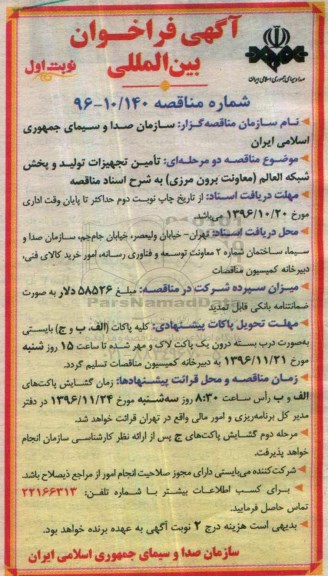 آگهی فراخوان
بین‌المللی
نوبت اول
صدا و سیمای جمهوری اسلامی ایران
شماره مناقصه ۱۴۰/۱۰-۹۶
نام سازمان مناقصه‌گزار: سازمان صدا و سیمای جمهوری
اسلامی ایران
موضوع مناقصه دو مرحله‌ای: تأمین تجهیزات تولید و پخش
شبکه العالم (معاونت برون مرزی) به شرح اسناد مناقصه
مهلت دریافت اسناد: از تاریخ چاپ نوبت دوم حداکثر تا پایان وقت اداری
مورخ ۱۳۹۶/۱۰/۲۰ می‌باشد.
محل دریافت اسناد: تهران- خیابان ولیعصر، خیابان جام‌جم، سازمان صدا و
سیما، ساختمان شماره ۲ معاونت توسعه و فناوری رسانه، امور خرید کالای فنی،
دبیرخانه کمیسیون مناقصات
میزان سپرده شرکت در مناقصه: مبلغ ۵۸۵۲۶ دلار به صورت
ضمانتنامه بانکی قابل تمدید
مهلت تحویل پاکات پیشنهادی: کلیه پاکات (الف، ب و ج) بایستی
به‌صورت درب بسته درون یک پاکت لاک و مهر شده تا ساعت ۱۵ روز شنبه
مورخ ۱۳۹۶/۱۱/۲۱ به دبیرخانه کمیسیون مناقصات تسلیم گردد.
زمان مناقصه و محل قرائت پیشنهادها: زمان گشایش پاکت‌های
الف و ب رأس ساعت ۸:۳۰ روز سه‌شنبه مورخ ۱۳۹۶/۱۱/۲۴ در دفتر
مدیر کل برنامه‌ریزی و امور مالی واقع در تهران قرائت خواهد شد.
مرحله دوم گشایش پاکت‌های ج پس از ارائه نظر کارشناسی سازمان انجام
خواهد پذیرفت.
شرکت‌کننده می‌بایستی دارای مجوز صلاحیت انجام امور از مراجع ذیصلاح باشد.
برای کسب اطلاعات بیشتر با شماره تلفن: ۲۲۱۶۶۳۱۳
تماس حاصل فرمایید.
بدیهی است هزینه درج ۲ نوبت آگهی به عهده برنده خواهد بود.
سازمان صدا و سیمای جمهوری اسلامی ایران